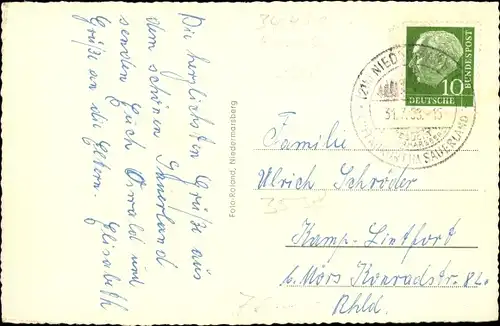 Die herzlichsten Grüße aus
dem schönen Sauerland
senden Euch Oswald und
Grüße an die Eltern. Elisabeth
Foto-Roland, Niedermarsberg
10
DEUTSCHE
BUNDESPOST
NIEDER
SAUERLAND
Familie
Ulrich Schröder
Kamp-Lintfort
b. Mörs Konradstr. 82
Rhld.